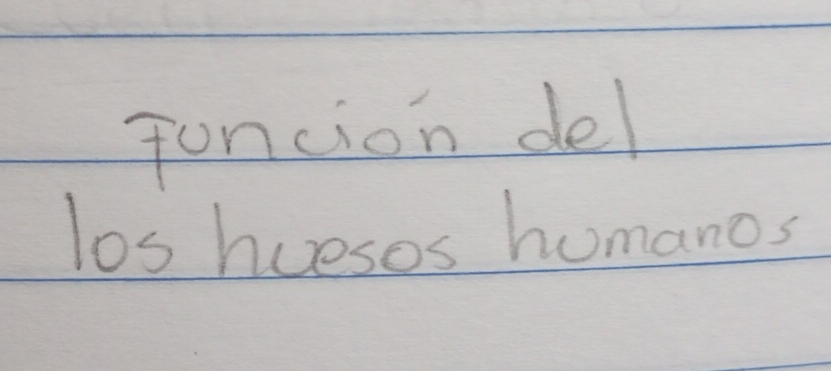 Función del
los huesos humanos